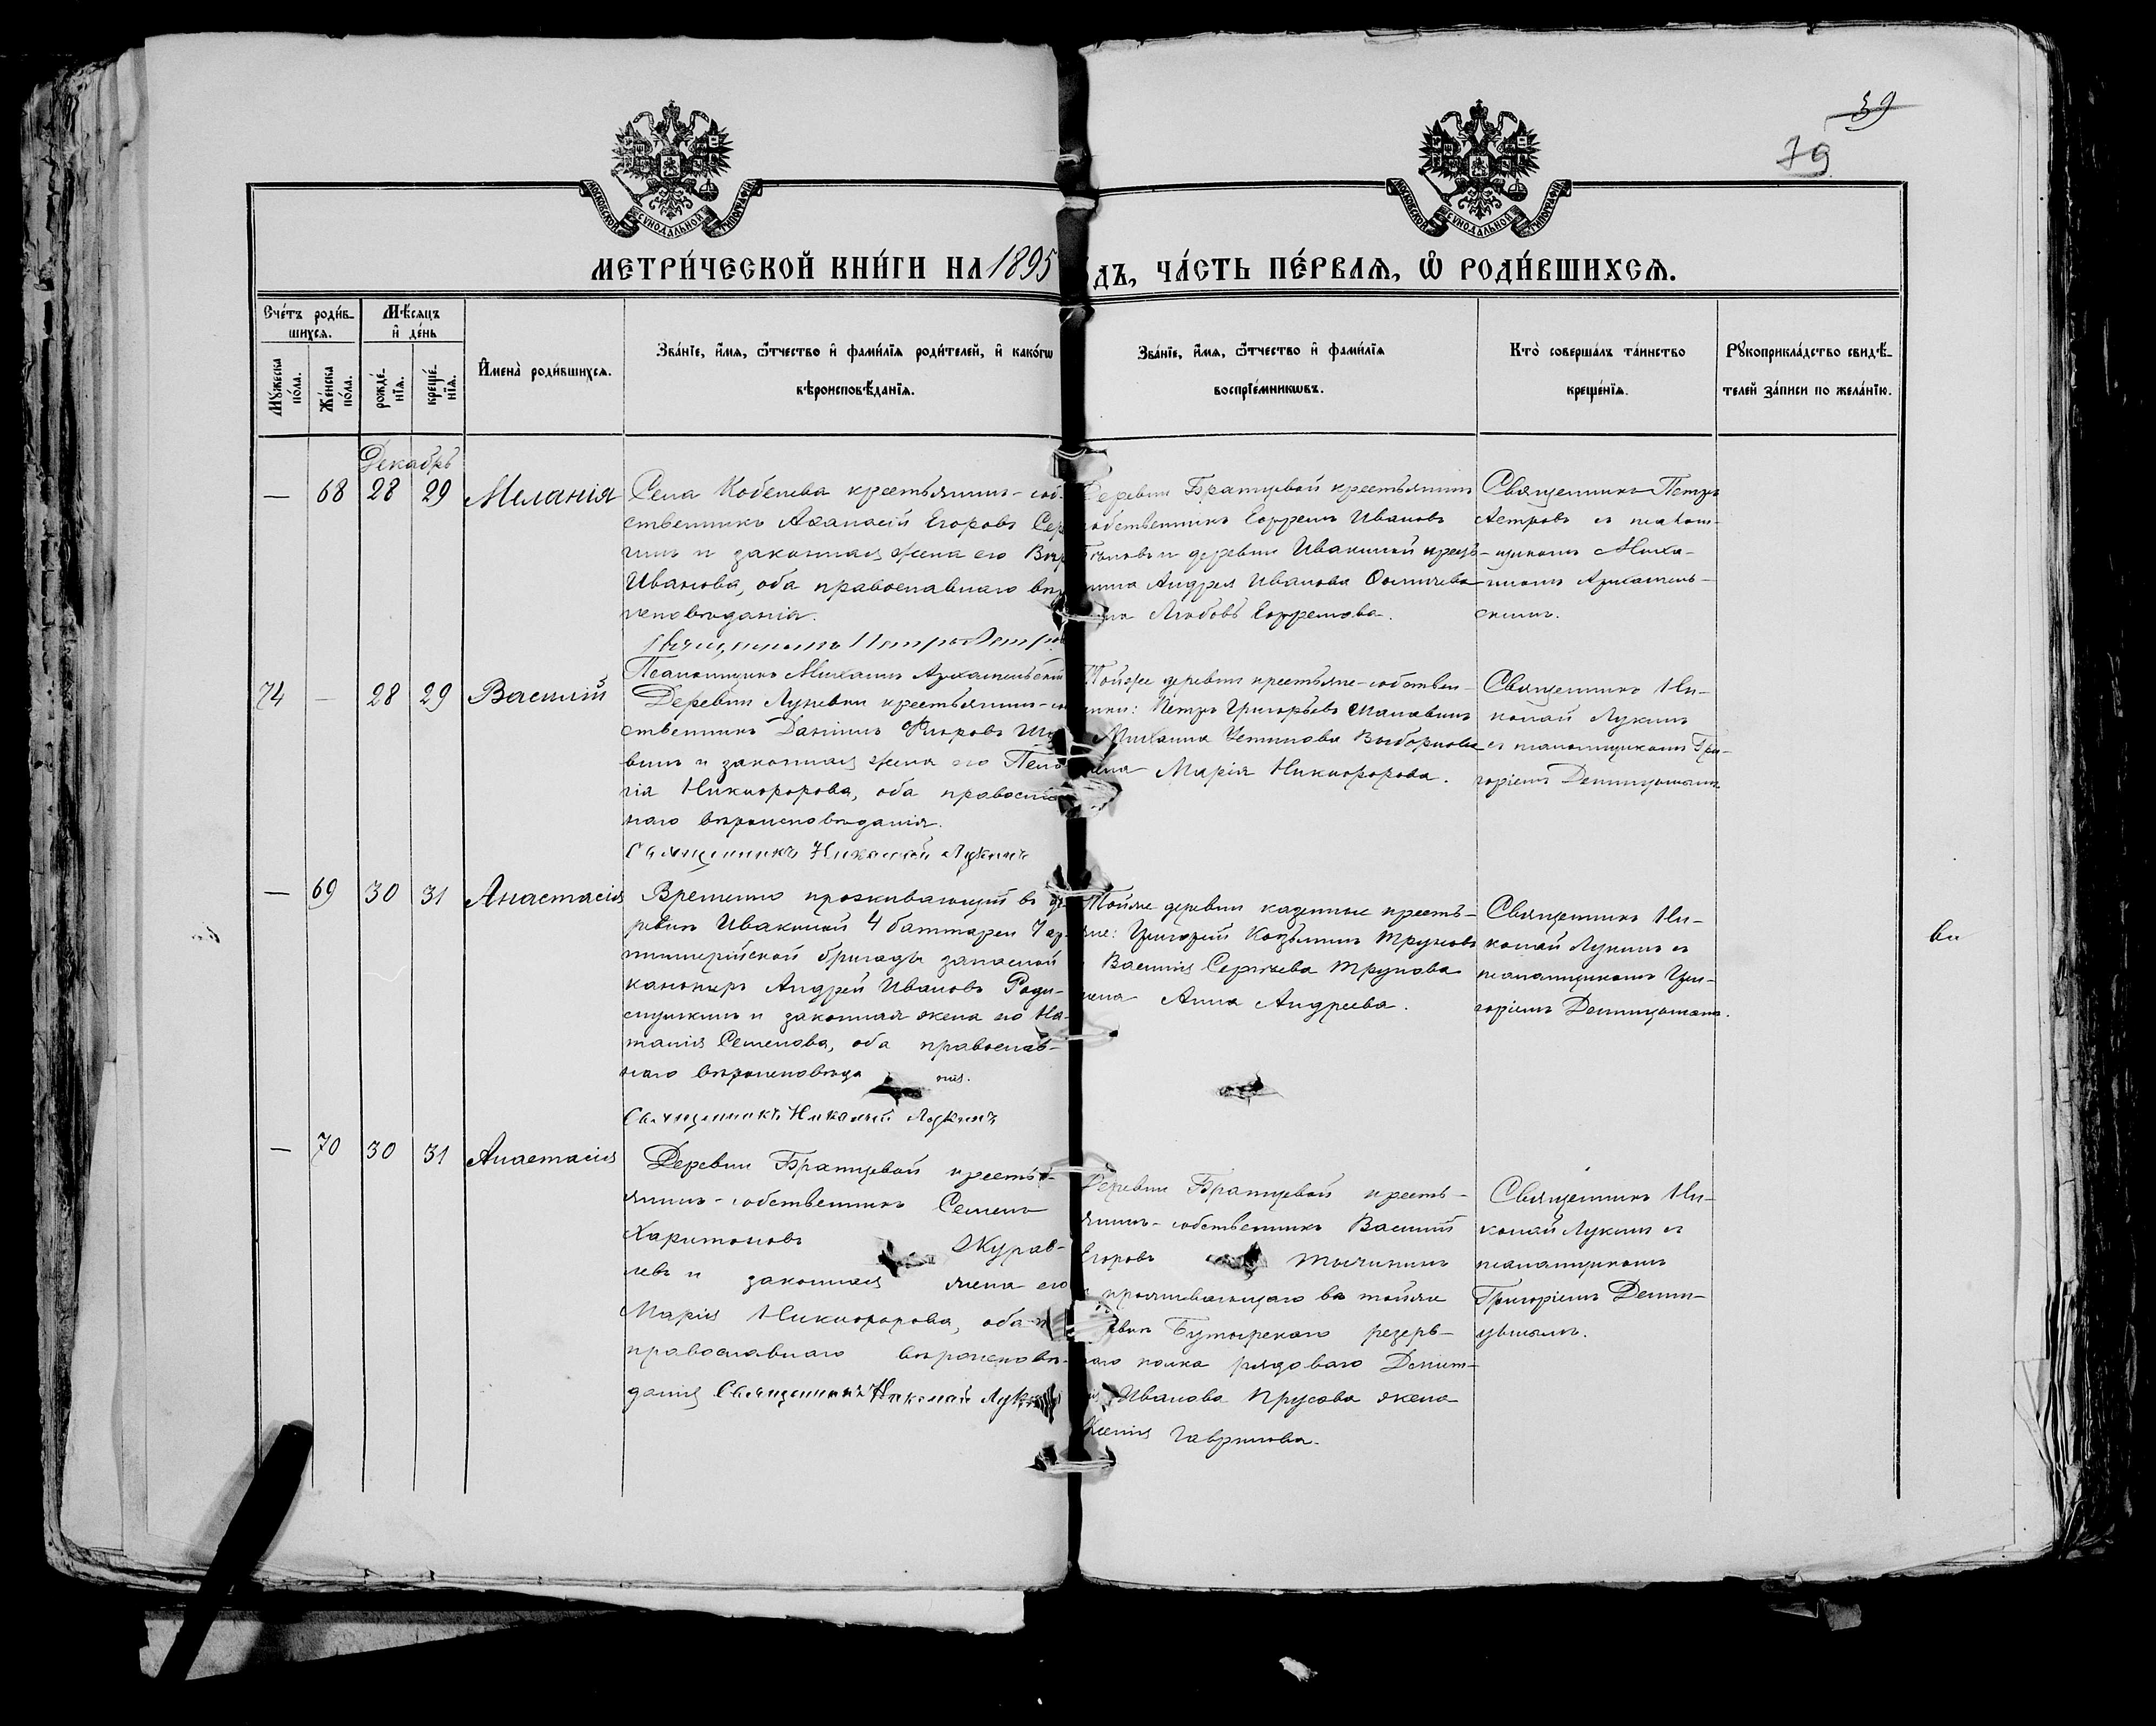 59
79
МОСКОВСКОЙ СѴНОДАЛЬНОЙ ТИПОГРАФІИ
МОСКОВСКОЙ СѴНОДАЛЬНОЙ ТИПОГРАФІИ
МЕТРИ́ЧЕСКОЙ КНИ́ГИ НА 1895
ДЪ, ЧА́СТЬ ПЕ́РВАѦ, Ѽ РОДИ́ВШИХСѦ.
Сче́тъ роди́в-
шихсѧ.
Мѣ́сѧцъ
и҆ де́нь
Мꙋ́жеска
по́ла.
Же́нска
по́ла.
рожде́-
нїѧ.
креще́-
нїѧ.
И҆мена̀ роди́вшихсѧ.
Зва́нїе, и҆́мѧ, ѻ҆́тчество и҆ фами́лїѧ роди́телей, и҆ како́гѡ
вѣроисповѣ́данїѧ.
Зва́нїе, и҆́мѧ, ѻ҆́тчество и҆ фами́лїѧ
воспрїе́мникѡвъ.
Кто̀ соверша́лъ та́инство
креще́нїѧ.
Рꙋкоприкла́дство свидѣ́-
телей за́писи по жела́нїю.
Декабрь
— 68 28 29 Меланія
Села Кобелева крестьянинъ-соб-
ственникъ Аѳанасій Егоровъ Сер
гинъ и законная жена его Вар
Иванова, оба православнаго вѣ
исповѣданія.
Священникъ Петръ Петров
Псаломщикъ Михаилъ Архангельскій
Деревни Братцевой крестьянинъ
собственникъ Ефремъ Ивановъ
и деревни Ивакиной крес
нина Андрея Иванова
Любовь Ефремова.
Священникъ Петръ
Петровъ съ псалом-
щикомъ Миха-
иломъ Архангель-
скимъ.
74 — 28 29 Василій
Деревни Луневки крестьянинъ-со
ственникъ Даніилъ Фроровъ
винъ и законная жена его Пела
гія Никифорова, оба правосла
наго вѣроисповѣданія.
Священникъ Николай Лукинъ
Той же деревни крестьяне-собствен-
ники: Петръ Григорьевъ Малавинъ
Михаила Устинова Выборнова
жена Марія Никифорова.
Священникъ Ни-
колай Лукинъ
съ псаломщикомъ Гри-
горіемъ
— 69 30 31 Анастасія
Временно проживающій въ де-
ревнѣ Ивакиной 4 баттареи 7 ар-
тиллерійской бригады запасной
канониръ Андрей Ивановъ Роди-
и законная жена его На-
талія Семенова, оба православ-
наго вѣроисповѣда нія.
Священникъ Николай Лукинъ
Той же деревни казенные кресть-
яне: Григорій Козьминъ Труновъ
Василія Сергѣева Трунова
жена Анна Андреева.
Священникъ Ни-
колай Лукинъ съ
псаломщикомъ Гри-
горіемъ
ви
— 70 30 31 Анастасія
Деревни Братцевой кресть-
янинъ-собственникъ Семенъ
Харитоновъ Журав-
левъ и законная жена его
Марія Никифорова, оба
православнаго вѣроисповѣ-
данія Священникъ Николай Лукинъ
Деревни Братцевой кресть-
янинъ-собственникъ Василій
Егоровъ Тычининъ
и проживающаго въ той же
ревнѣ Бутырскаго резерв-
наго полка рядоваго Демент-
Иванова Прусова жена
Ксенія Гаврилова.
Священникъ Ни-
колай Лукинъ съ
псаломщикомъ
Григоріемъ